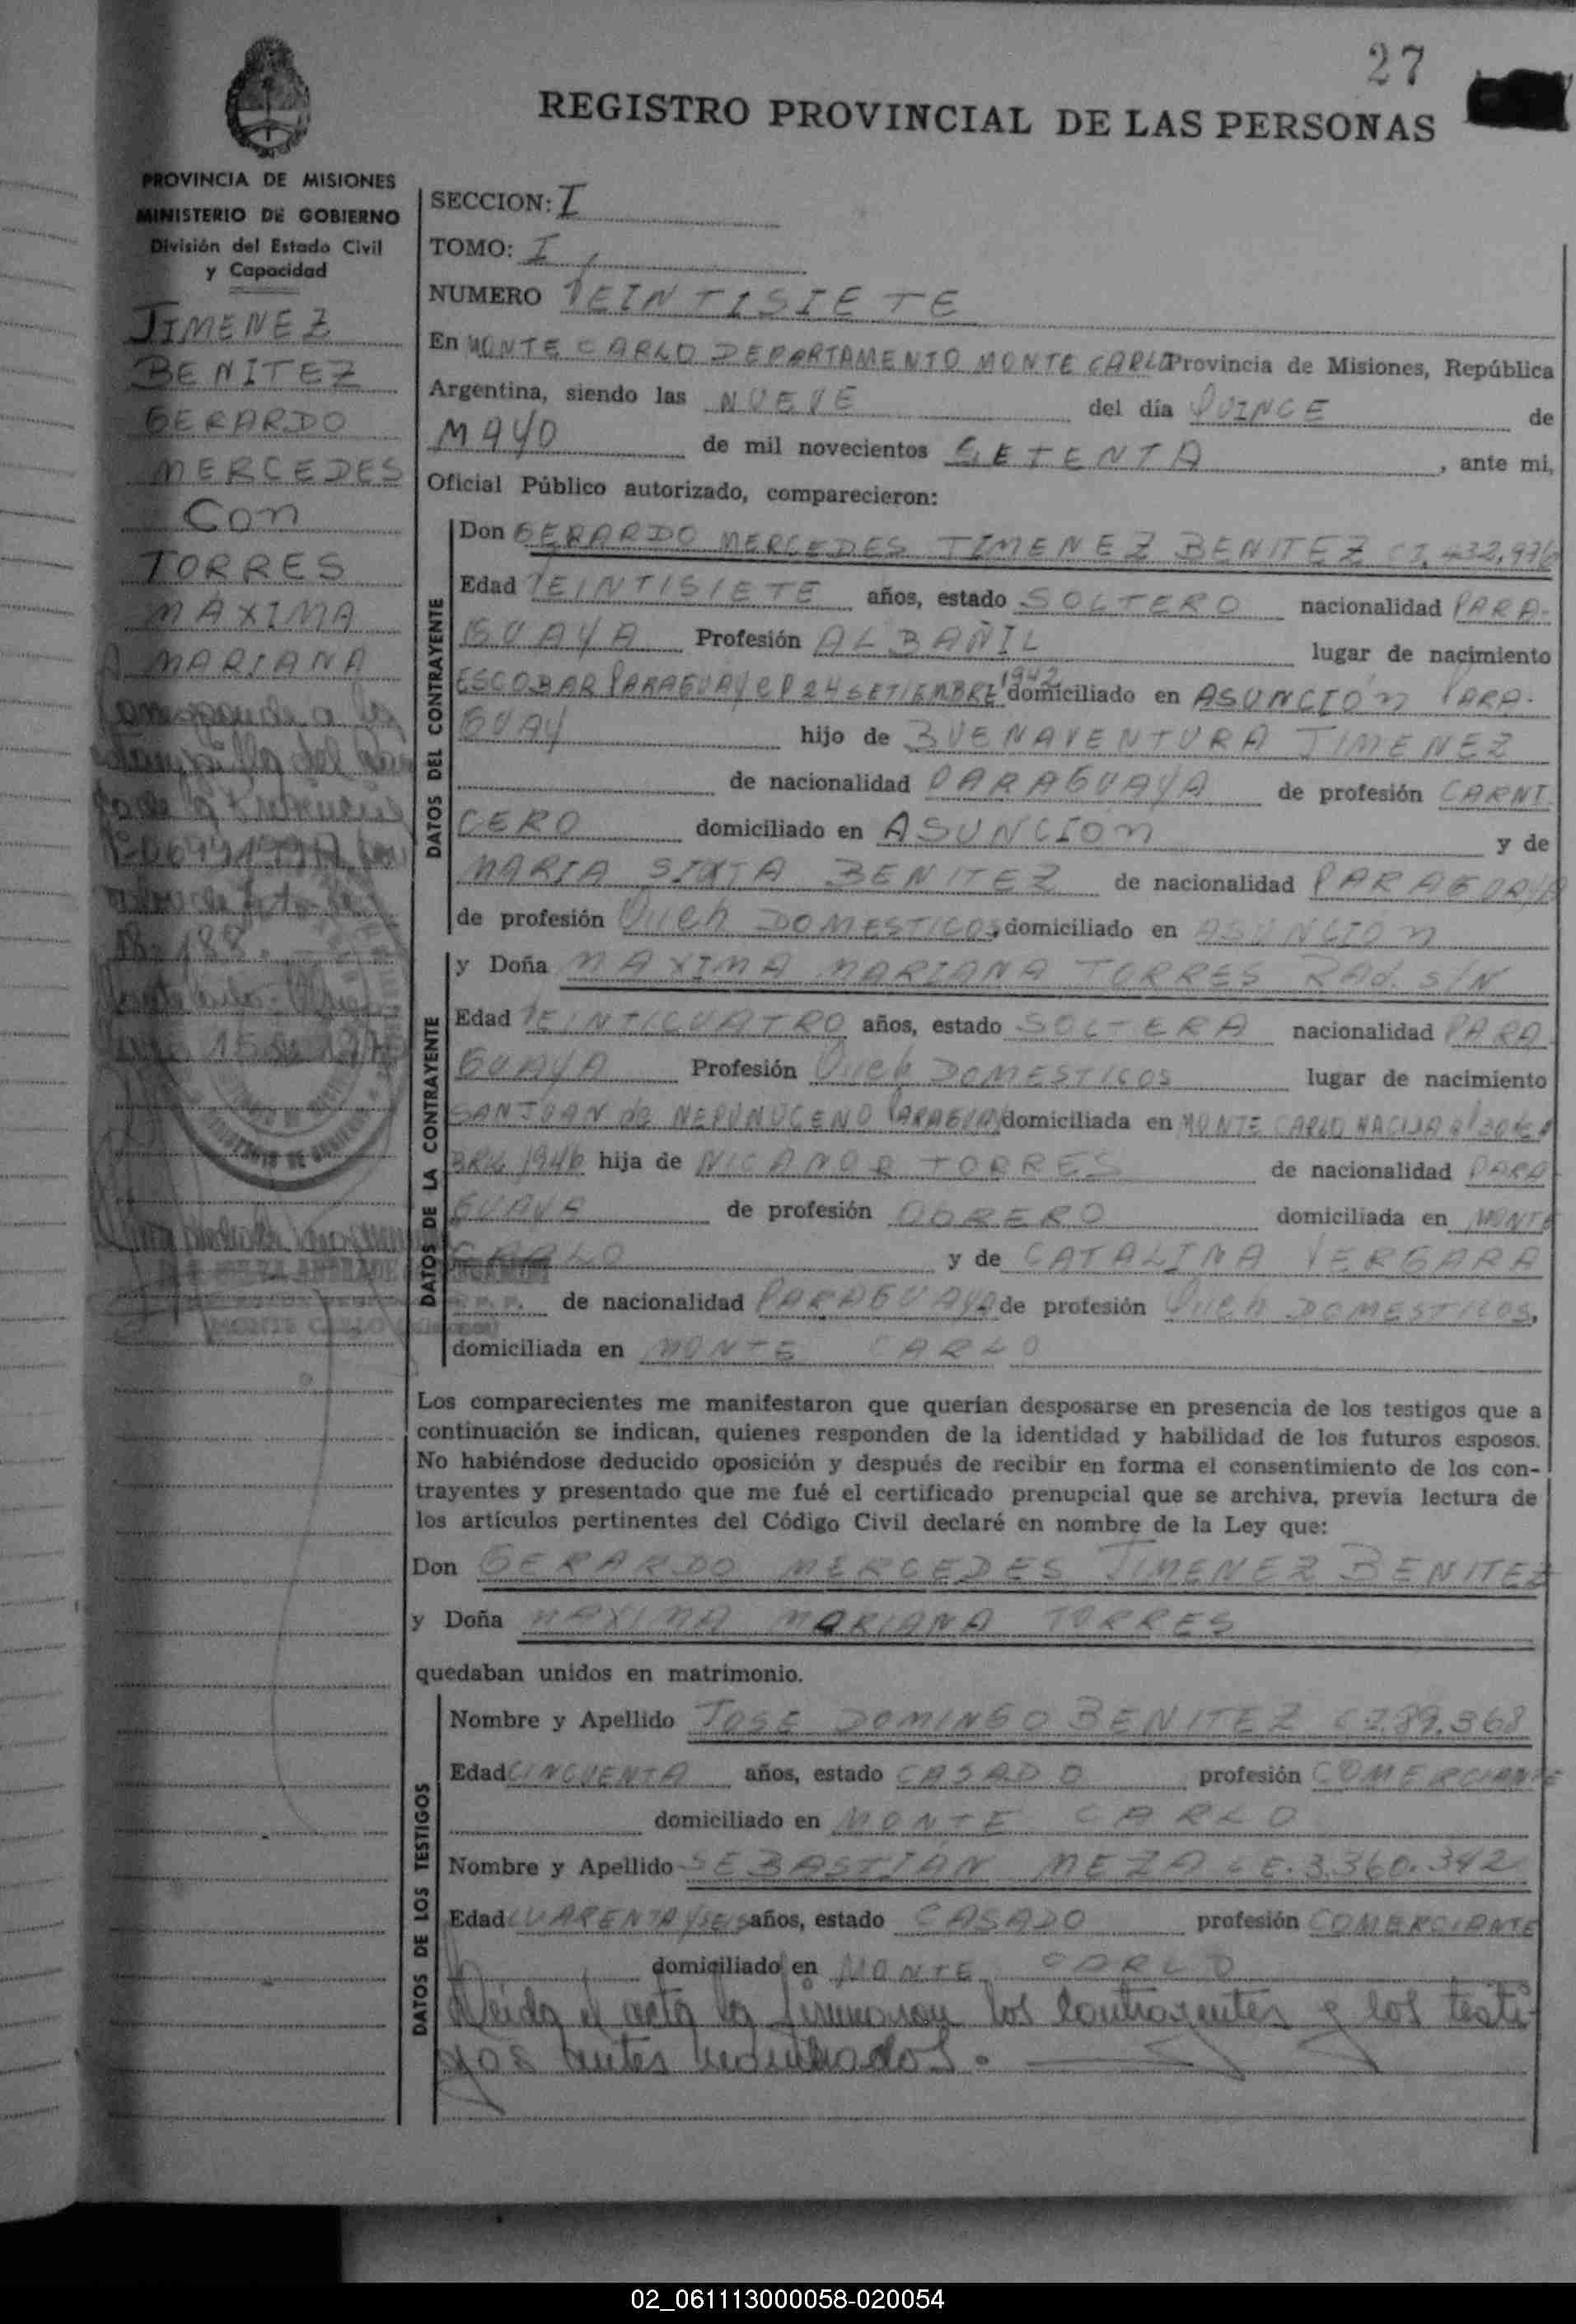 27
REGISTRO PROVINCIAL DE LAS PERSONAS
PROVINCIA DE MISIONES
MINISTERIO DE GOBIERNO
División del Estado Civil
y Capacidad
JIMENEZ
BENITEZ
GERARDO
MERCEDES
Con
TORRES
MÁXIMA
MARIANA
SECCION: I
TOMO: I
NUMERO VEINTISIETE
En MONTE CARLO DEPARTAMENTO MONTE CARLO Provincia de Misiones, República
Argentina, siendo las NUEVE del día QUINCE de
MAYO de mil novecientos SETENTA, ante mi,
Oficial Público autorizado, comparecieron:
DATOS DEL CONTRAYENTE
Don GERARDO MERCEDES JIMENEZ BENITEZ CI. 432.976
Edad VEINTISIETE años, estado SOLTERO nacionalidad PARA-
GUAYA Profesión ALBAÑIL lugar de nacimiento
ESCOBAR PARAGUAY el 24 SETIEMBRE 1942 domiciliado en ASUNCIÓN PARA-
GUAY hijo de BUENAVENTURA JIMENEZ
de nacionalidad PARAGUAYA de profesión CARNI
CERO domiciliado en ASUNCIÓN y de
MARIA SIXTA BENITEZ de nacionalidad PARAGUAYA
de profesión Queh DOMESTICOS, domiciliado en ASUNCIÓN
DATOS DE LA CONTRAYENTE
y Doña MAXIMA MARIANA TORRES RAD. S/N
Edad VEINTICUATRO años, estado SOLTERA nacionalidad PARA
GUAYA Profesión Queh DOMESTICOS lugar de nacimiento
SAN JUAN de NEPUNUCENO PARAGUAY domiciliada en MONTE CARLO NACIDA el 30
1946 hija de NICANOR TORRES de nacionalidad PARA
GUAYA de profesión OBRERO domiciliada en MONTE
CARLO y de CATALINA VERGARA
de nacionalidad PARAGUAYA de profesión Queh DOMESTICOS,
domiciliada en MONTE CARLO
Los comparecientes me manifestaron que querían desposarse en presencia de los testigos que a
continuación se indican, quienes responden de la identidad y habilidad de los futuros esposos.
No habiéndose deducido oposición y después de recibir en forma el consentimiento de los con-
trayentes y presentado que me fué el certificado prenupcial que se archiva, previa lectura de
los artículos pertinentes del Código Civil declaré en nombre de la Ley que:
Don GERARDO MERCEDES JIMENEZ BENITEZ
y Doña MAXIMA MARIANA TORRES
quedaban unidos en matrimonio.
DATOS DE LOS TESTIGOS
Nombre y Apellido JOSE DOMINGO BENITEZ CI.89.368
Edad CINCUENTA años, estado CASADO profesión COMERCIANTE
domiciliado en MONTE CARLO
Nombre y Apellido SEBASTIÁN MEZA CE.3.360.342
Edad CUARENTA y SEIS años, estado CASADO profesión COMERCIANTE
domiciliado en MONTE CARLO
Leida el acta la firmaron los contrayentes y los testi-
gos antes nombrados.
02_061113000058-020054